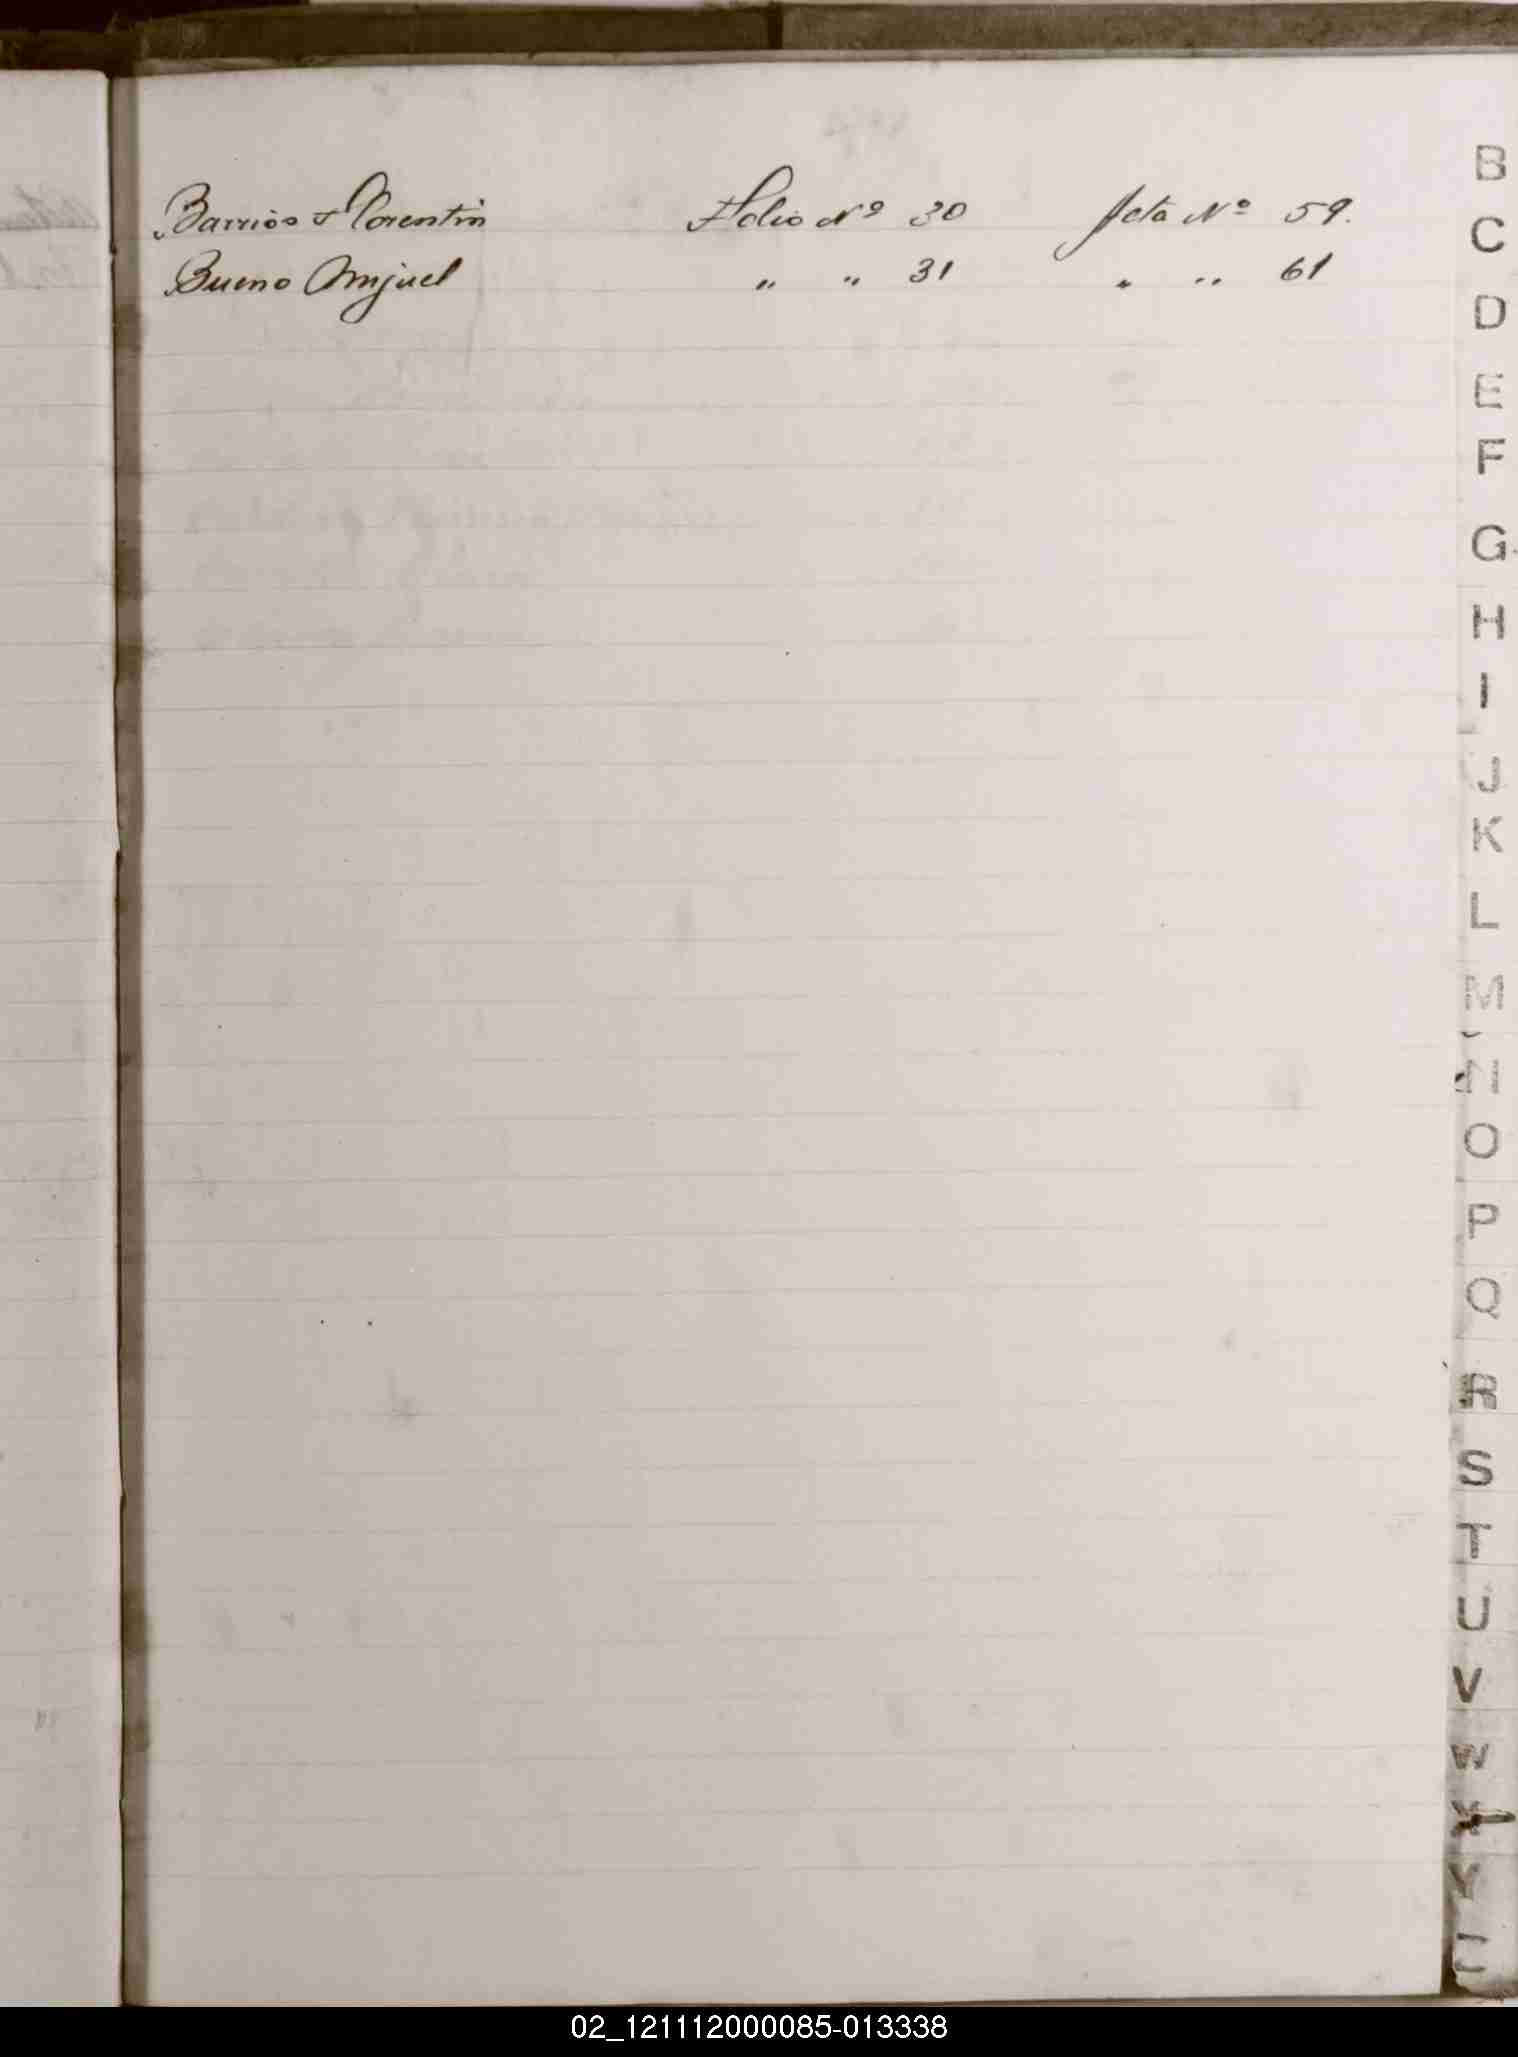 Barrios Florentin Folio Nº 30 Acta Nº 59.
Bueno Miguel " " 31 " " 61
B
C
D
E
F
G
H
I
J
K
L
M
N
O
P
Q
R
S
T
U
V
W
X
Y
Z
02_121112000085-013338